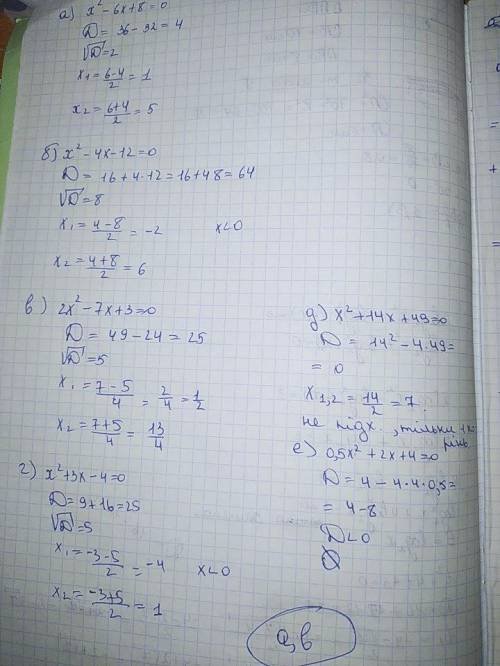 а) x² - 6x + 8 = 0
D = 36 - 32 = 4
√D = 2
x₁ = (6-4)/2 = 1
x₂ = (6+4)/2 = 5
б) x² - 4x - 12 = 0
D = 16 + 4·12 = 16 + 48 = 64
√D = 8
x₁ = (4-8)/2 = -2    x<0
x₂ = (4+8)/2 = 6
в) 2x² - 7x + 3 = 0
D = 49 - 24 = 25
√D = 5
x₁ = (7-5)/4 = 2/4 = 1/2
x₂ = (7+5)/4 = 13/4
г) x² + 3x - 4 = 0
D = 9 + 16 = 25
√D = 5
x₁ = (-3-5)/2 = -4    x<0
x₂ = (-3+5)/2 = 1
д) x² + 14x + 49 = 0
D = 14² - 4·49 =
= 0
x₁,₂ = 14/2 = 7.
не підх., тільки 1 ко
рінь
е) 0,5x² + 2x + 4 = 0
D = 4 - 4·4·0,5 =
= 4 - 8
D<0
∅
а, в